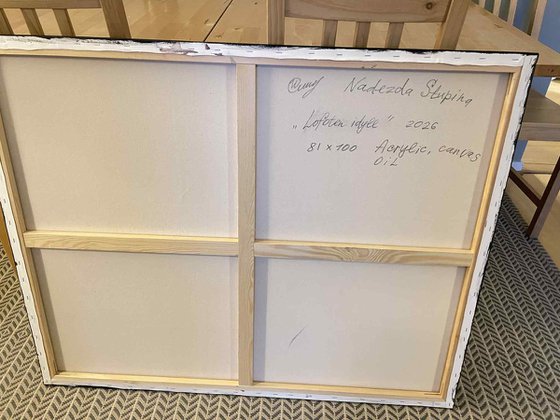 Nadezda Stupina
„Lofoten idyll" 2026
81 x 100 Acrylic, canvas
OiL